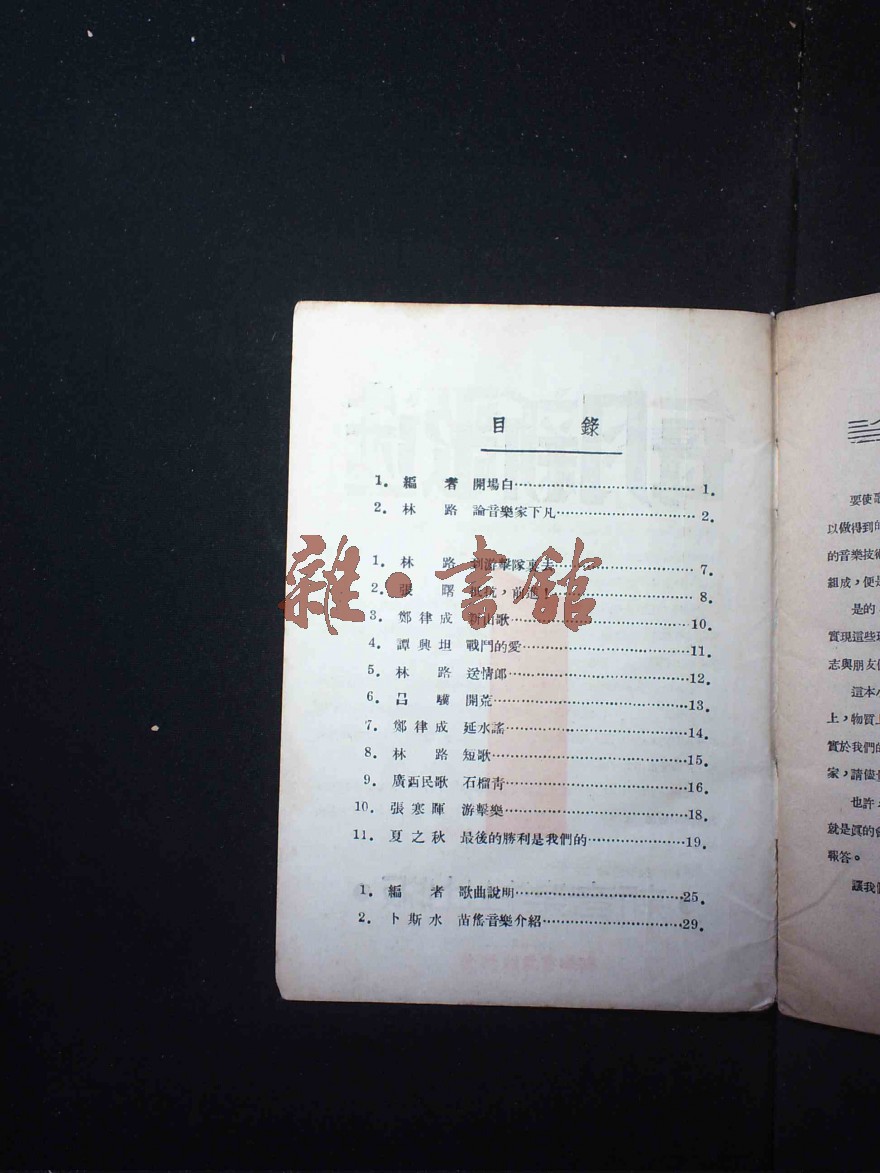 目錄
1. 編者 開場白 1.
2. 林路 論音樂家下凡 2.
1. 林路 到游擊隊裏去 7.
2. 張曙 抵抗,前進! 8.
3. 鄭律成 新山歌 10.
4. 譚興坦 戰鬥的愛 11.
5. 林路 送情郎 12.
6. 呂驥 開荒 13.
7. 鄭律成 延水謠 14.
8. 林路 短歌 15.
9. 廣西民歌 石榴青 16.
10. 張寒暉 游擊樂 18.
11. 夏之秋 最後的勝利是我們的 19.
1. 編者 歌曲說明 25.
2. 卜斯水 苗傜音樂介紹 29.
雜·書館
要使
以做得到的
的音樂技術
組成,便是
是的
實現這些
志與朋友
這本
上,物質上
實於我們的
家,請儘
也許
就是真的會
報答。
讓我們